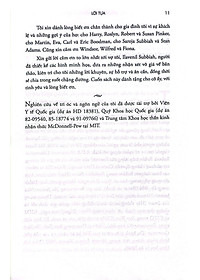 LỜI TỰA 11
Tôi xin dành lòng biết ơn chân thành cho gia đình tôi vì sự khích
lệ và những gợi ý của họ: cho Harry, Roslyn, Robert và Susan Pinker,
cho Martin, Eva, Carl và Eric Boodman, cho Saroja Subbiah và Stan
Adams. Cũng xin cảm ơn Windsor, Wilfred và Fiona.
Xin gửi lời cảm ơn to lớn nhất tới vợ tôi, Ilavenil Subbiah, người đã
thiết kế các hình minh họa, đưa ra những nhận xét vô giá về bản
thảo, không ngừng cho tôi lời khuyên, sự hỗ trợ và ân cần, đồng thời
sẻ chia trong cuộc thăng trầm. Cuốn sách này dành tặng cho cô ấy, với
tình yêu và lòng biết ơn.
Nghiên cứu về trí óc và ngôn ngữ của tôi đã được tài trợ bởi Viện
Y tế Quốc gia (dự án HD 18381), Quỹ Khoa học Quốc gia (dự án
82-09540, 85-18774 và 91-09766) và Trung tâm Khoa học thần kinh
nhận thức McDonnell-Pew tại MIT.